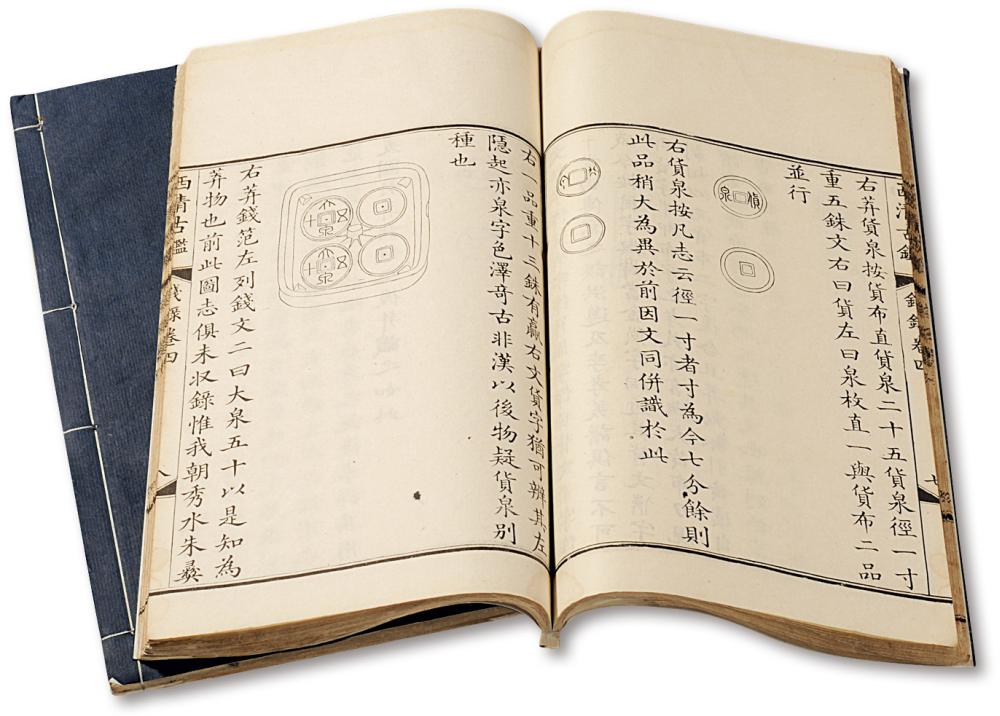 錢錄卷四
七
右莽貨泉按貨布直貨泉二十五貨泉徑一寸
重五銖文右曰貨左曰泉枚直一與貨布二品
並行
貨泉
右貨泉按凡志云徑一寸者寸為今七分餘則
此品稍大為異於前因文同併識於此
右一品重十三銖有贏右文貨字猶可辨其左
隱起亦泉字色澤奇古非漢以後物疑貨泉別
種也
大泉五十
大泉五十
右莽錢笵左列錢文二曰大泉五十以是知為
莽物也前此圖志俱未収錄惟我朝秀水朱彝
西清古鑑
錢錄卷四
八